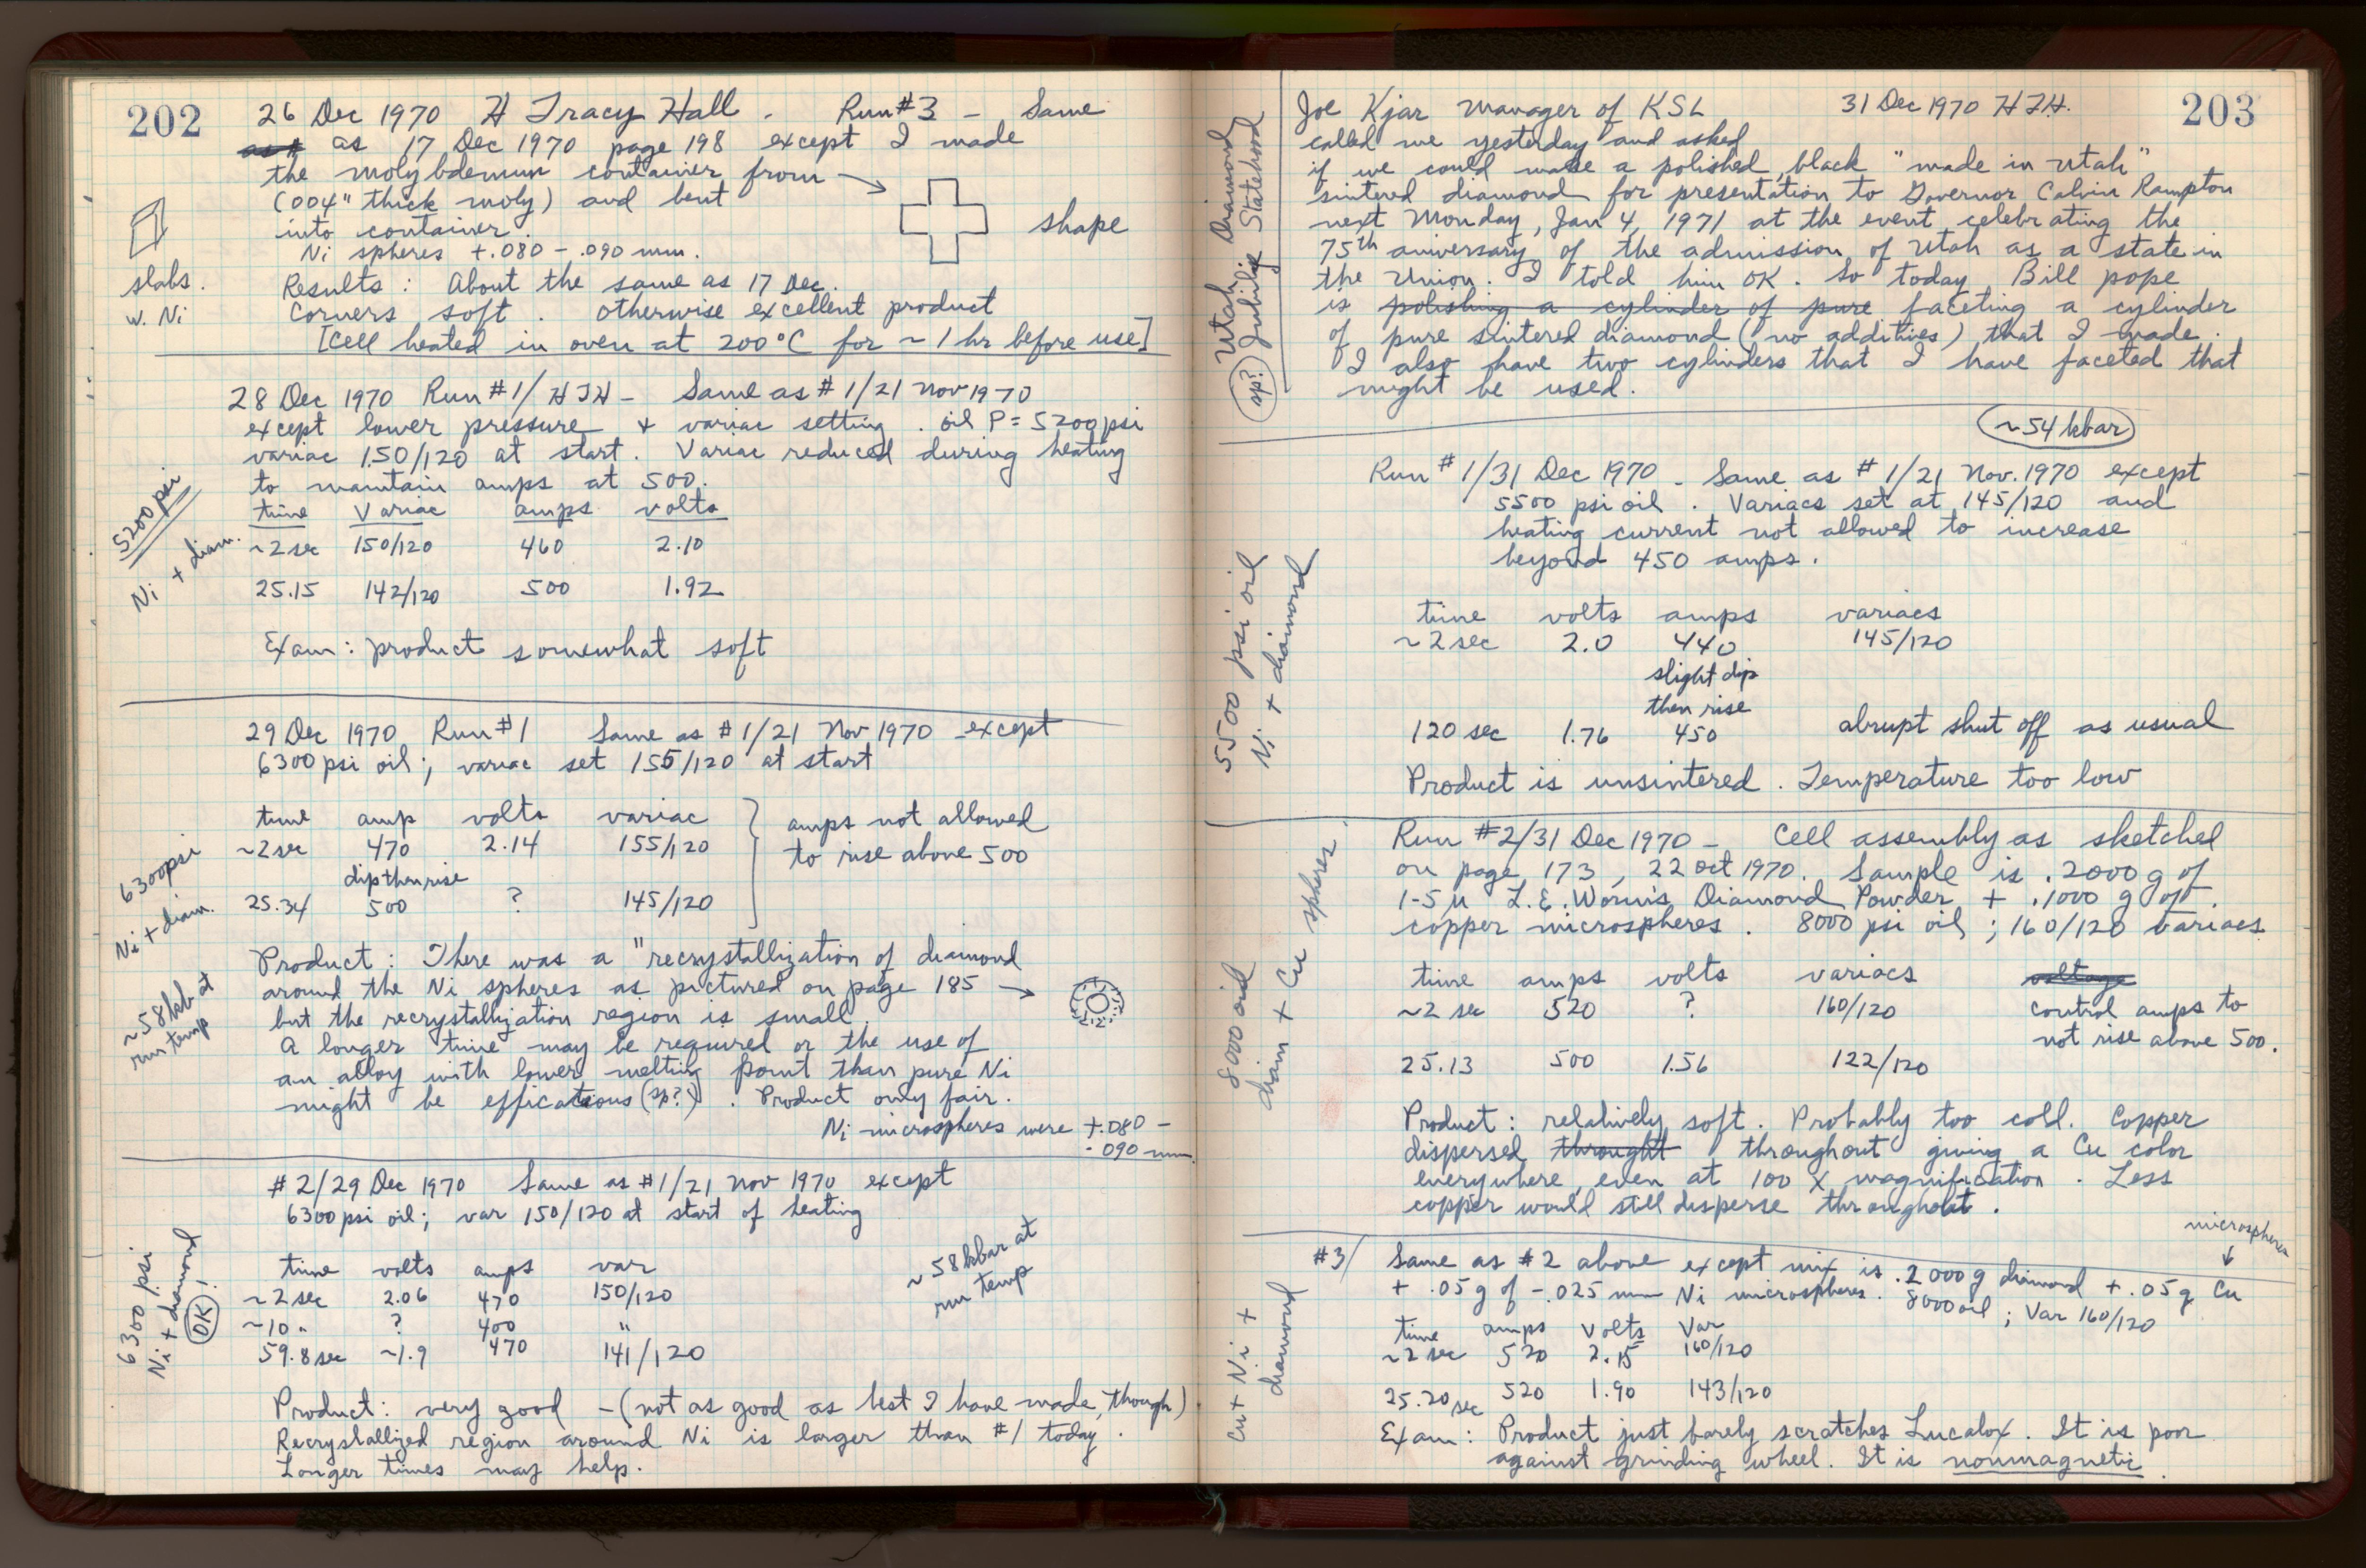 202
26 Dec 1970 H Tracy Hall - Run #3 - Same
as 17 Dec 1970 page 198 except I made
the molybdenum container from →
(.004" thick moly) and bent
into container.
shape
Ni spheres +.080 - .090 mm.
slabs.
w. Ni
Results: About the same as 17 Dec.
Corners soft. otherwise excellent product
[Cell heated in oven at 200°C for ~ 1 hr before use]
28 Dec 1970 Run #1/ HTH - Same as #1/21 Nov 1970
except lower pressure + variac setting. oil P = 5200 psi
variac 150/120 at start. Variac reduced during heating
to maintain amps at 500.
5200 psi
Ni + diam.
time Variac amps volts
~2 sec 150/120 460 2.10
25.15 142/120 500 1.92
Exam: product somewhat soft
29 Dec 1970 Run #1 Same as #1/21 Nov 1970 except
6300 psi oil; variac set 155/120 at start
6300 psi
Ni + diam.
~58 kb at
run temp
time amp volts variac
~2 sec 470 2.14 155/120
dip then rise
25.34 500 ? 145/120
amps not allowed
to rise above 500
Product: There was a "recrystallization of diamond
around the Ni spheres as pictured on page 185 →
but the recrystallization region is small.
A longer time may be required or the use of
an alloy with lower melting point than pure Ni
might be efficatious (sp?). Product only fair.
Ni microspheres were +.080 -
.090 mm.
#2/29 Dec 1970 Same as #1/21 Nov 1970 except
6300 psi oil; var 150/120 at start of heating
6300 psi
Ni + diamond
OK!
~58 kbar at
run temp
time volts amps var
~2 sec 2.06 470 150/120
~10 " ? 400 "
59.8 sec ~1.9 470 141/120
Product: very good - (not as good as best I have made, though)
Recrystallized region around Ni is larger than #1 today.
Longer times may help.
203
Utah Diamond
(sp?) Jubilije Statehood
Joe Kjar manager of KSL 31 Dec 1970 HTH.
called me yesterday and asked
if we could make a polished, black "made in Utah"
sintered diamond for presentation to Governor Calvin Rampton
next Monday, Jan 4, 1971 at the event celebrating the
75th aniversary of the admission of Utah as a state in
the Union. I told him OK. So today Bill pope
is polishing a cylinder of pure faceting a cylinder
of pure sintered diamond (no additives) that I made.
I also have two cylinders that I have faceted that
might be used.
~54 kbar
5500 psi oil
Ni + diamond
Run #1/31 Dec 1970 - Same as #1/21 Nov. 1970 except
5500 psi oil. Variacs set at 145/120 and
heating current not allowed to increase
beyond 450 amps.
time volts amps variacs
~2 sec 2.0 440 145/120
slight dip
then rise
120 sec 1.76 450 abrupt shut off as usual
Product is unsintered. Temperature too low
8000 oil
diam + Cu spheres.
Run #2/31 Dec 1970 - Cell assembly as sketched
on page 173, 22 Oct 1970. Sample is .2000 g of
1-5 μ L.E. Worm's Diamond Powder + .1000 g of
copper microspheres. 8000 psi oil; 160/120 variacs
time amps volts variacs voltage
~2 sec 520 ? 160/120 control amps to
not rise above 500.
25.13 500 1.56 122/120
Product: relatively soft. Probably too cold. Copper
dispersed throught throughout giving a Cu color
everywhere, even at 100 X magnification. Less
copper would still disperse throughout.
microspheres
↓
Cu + Ni +
diamond
#3/ Same as #2 above except mix is .2000g diamond + .05g Cu
+ .05g of -.025 mm Ni microspheres. 8000 oil; Var 160/120
time amps Volts Var
~2 sec 520 2.15 160/120
25.20 sec 520 1.90 143/120
Exam: Product just barely scratches Lucalox. It is poor
against grinding wheel. It is nonmagnetic.